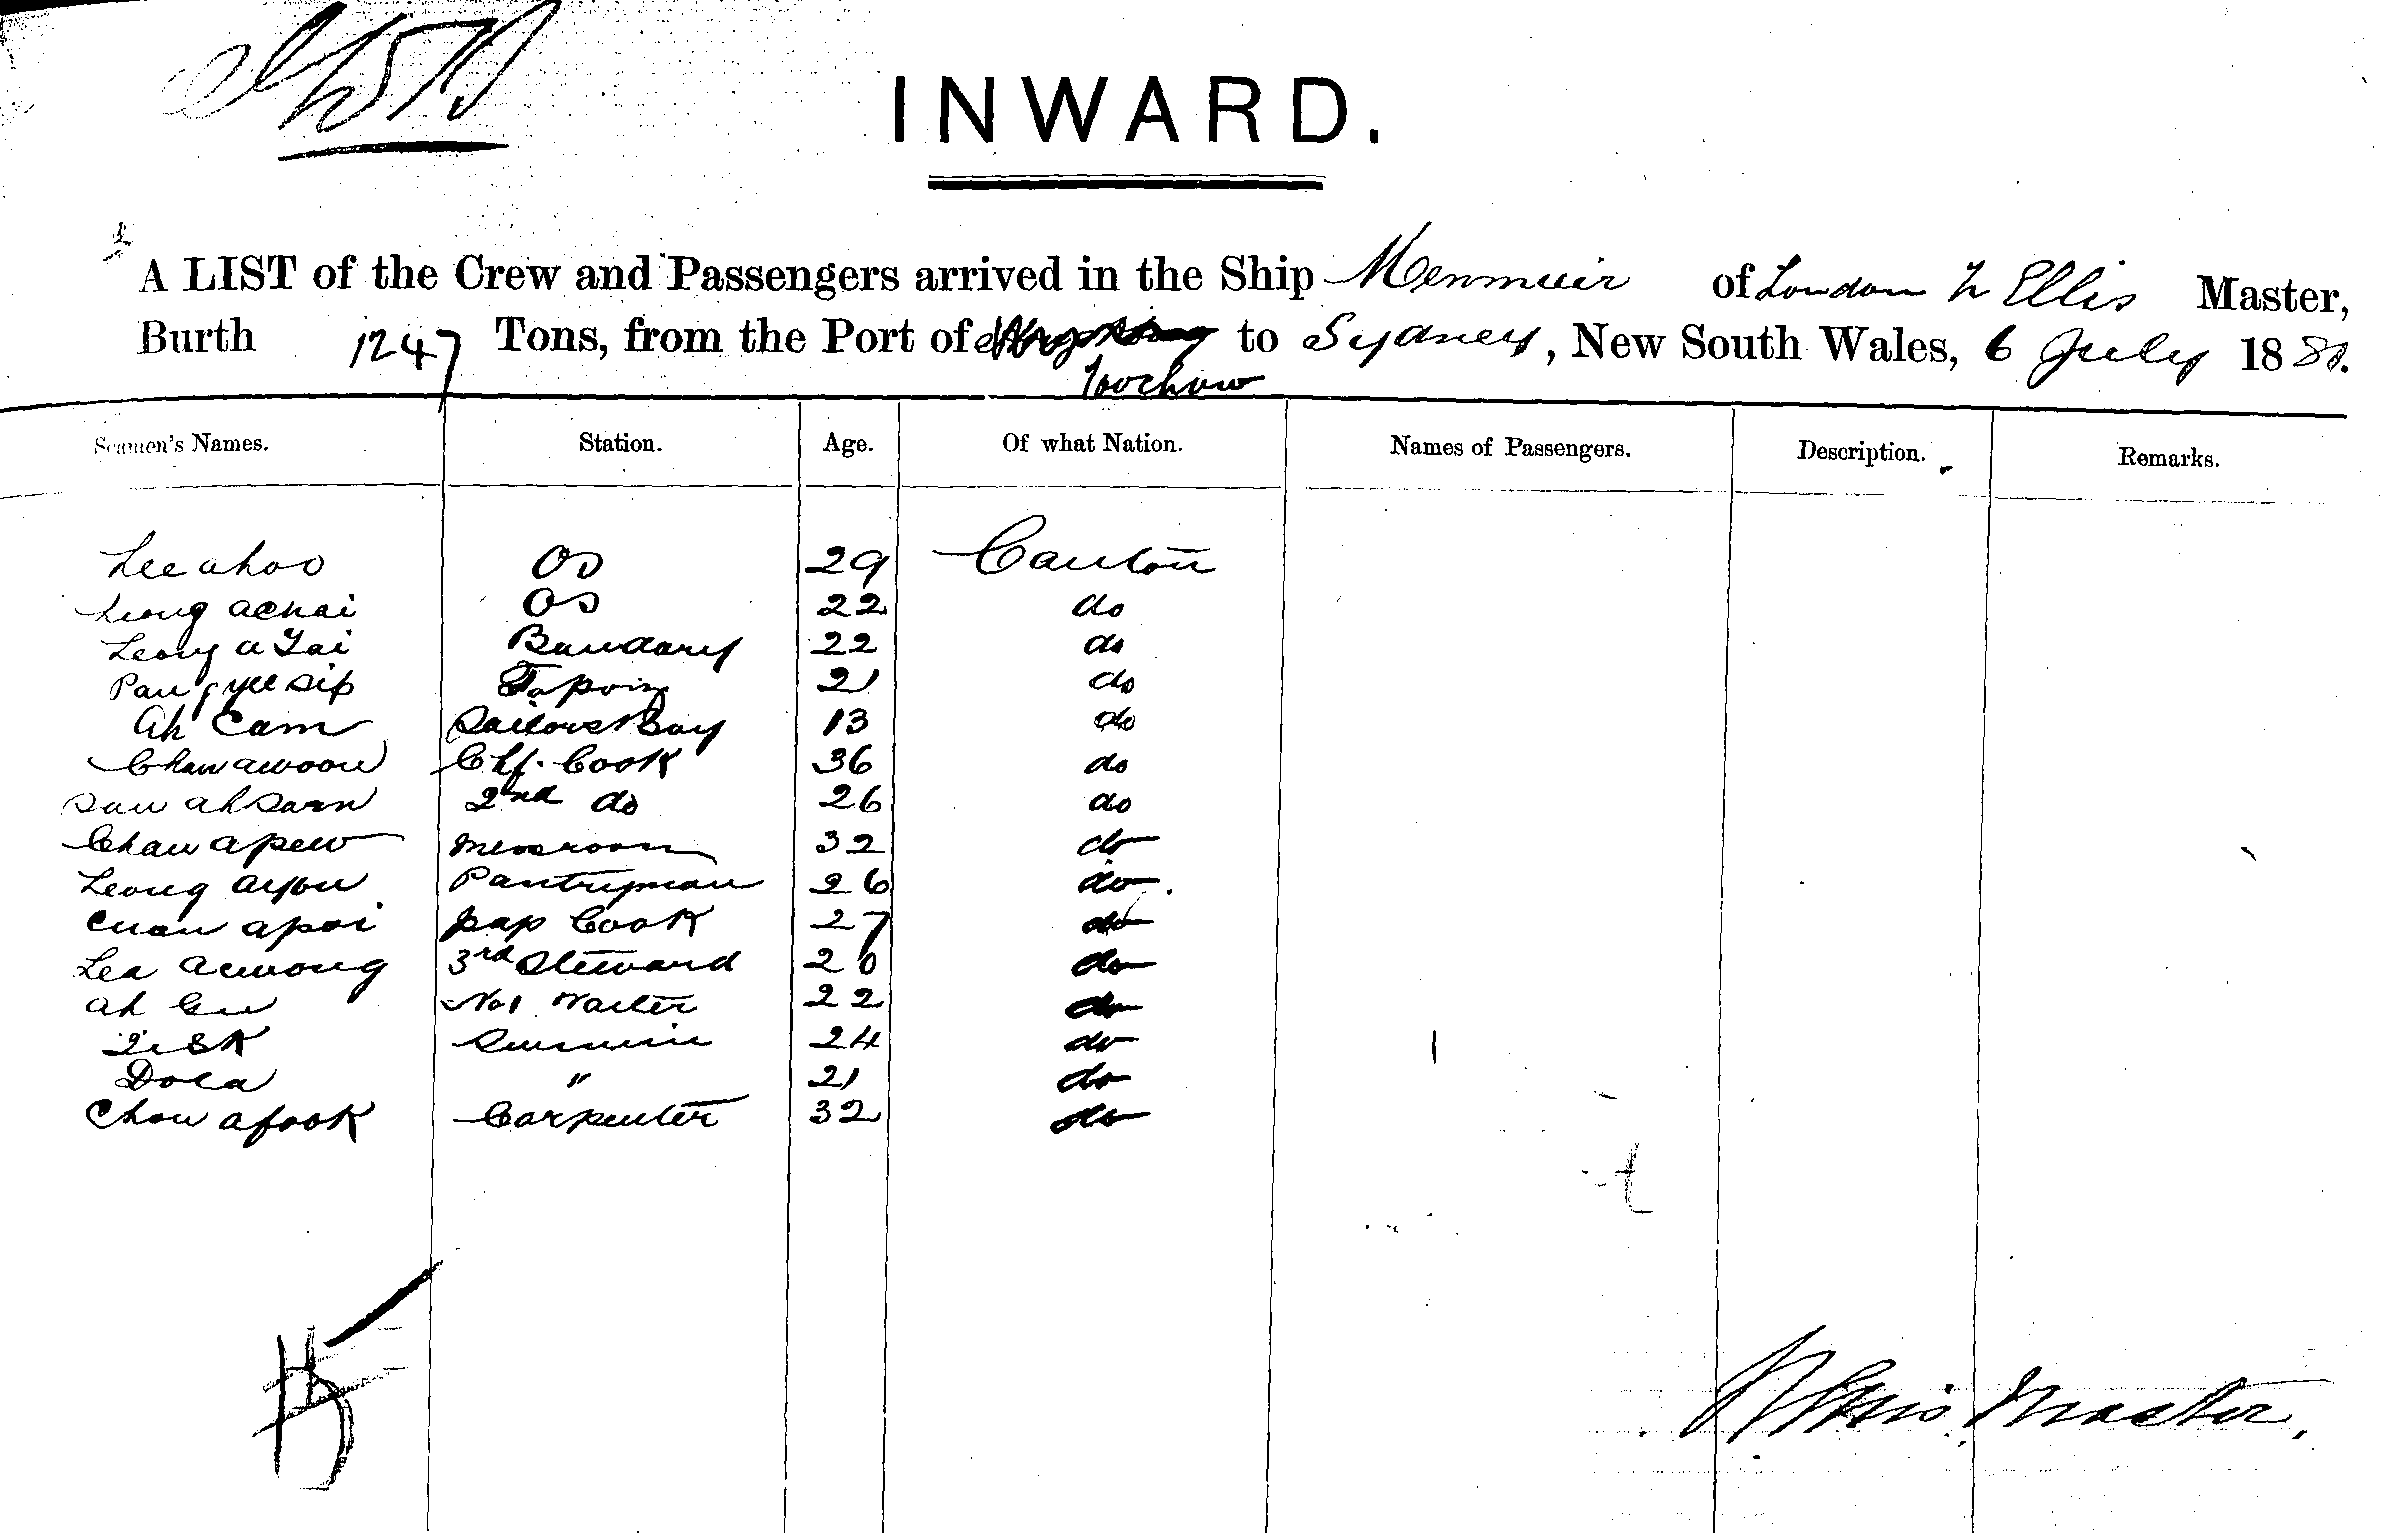 INWARD.
A LIST of the Crew and Passengers arrived in the Ship Menmuir of London W Ellis Master,
Burth 1247 Tons, from the Port of Hong Kong to Sydney, New South Wales, 6 July 188
Foochow
Seamen's Names. Station. Age. Of what Nation. Names of Passengers. Description. Remarks.
Lee ahoo OS 29 Canton
Leong achai OS 22 do
Leong a Tai Bandary 22 do
yee sip Topoin 21 do
Ah Cam Sailors Boy 13 do
Chan awoon Chf. Cook 36 do
San ah Sam 2nd do 26 do
Chan apew messroom 32 do
Leong ayou Pantryman 26 do.
Chan apoi pap Cook 27 do
Lea acwong 3rd Steward 20 do
ah No1 Waiter 22 do
24 do
Dola " 21 do
Chou afook Carpenter 32 do
15
W Ellis, Master.